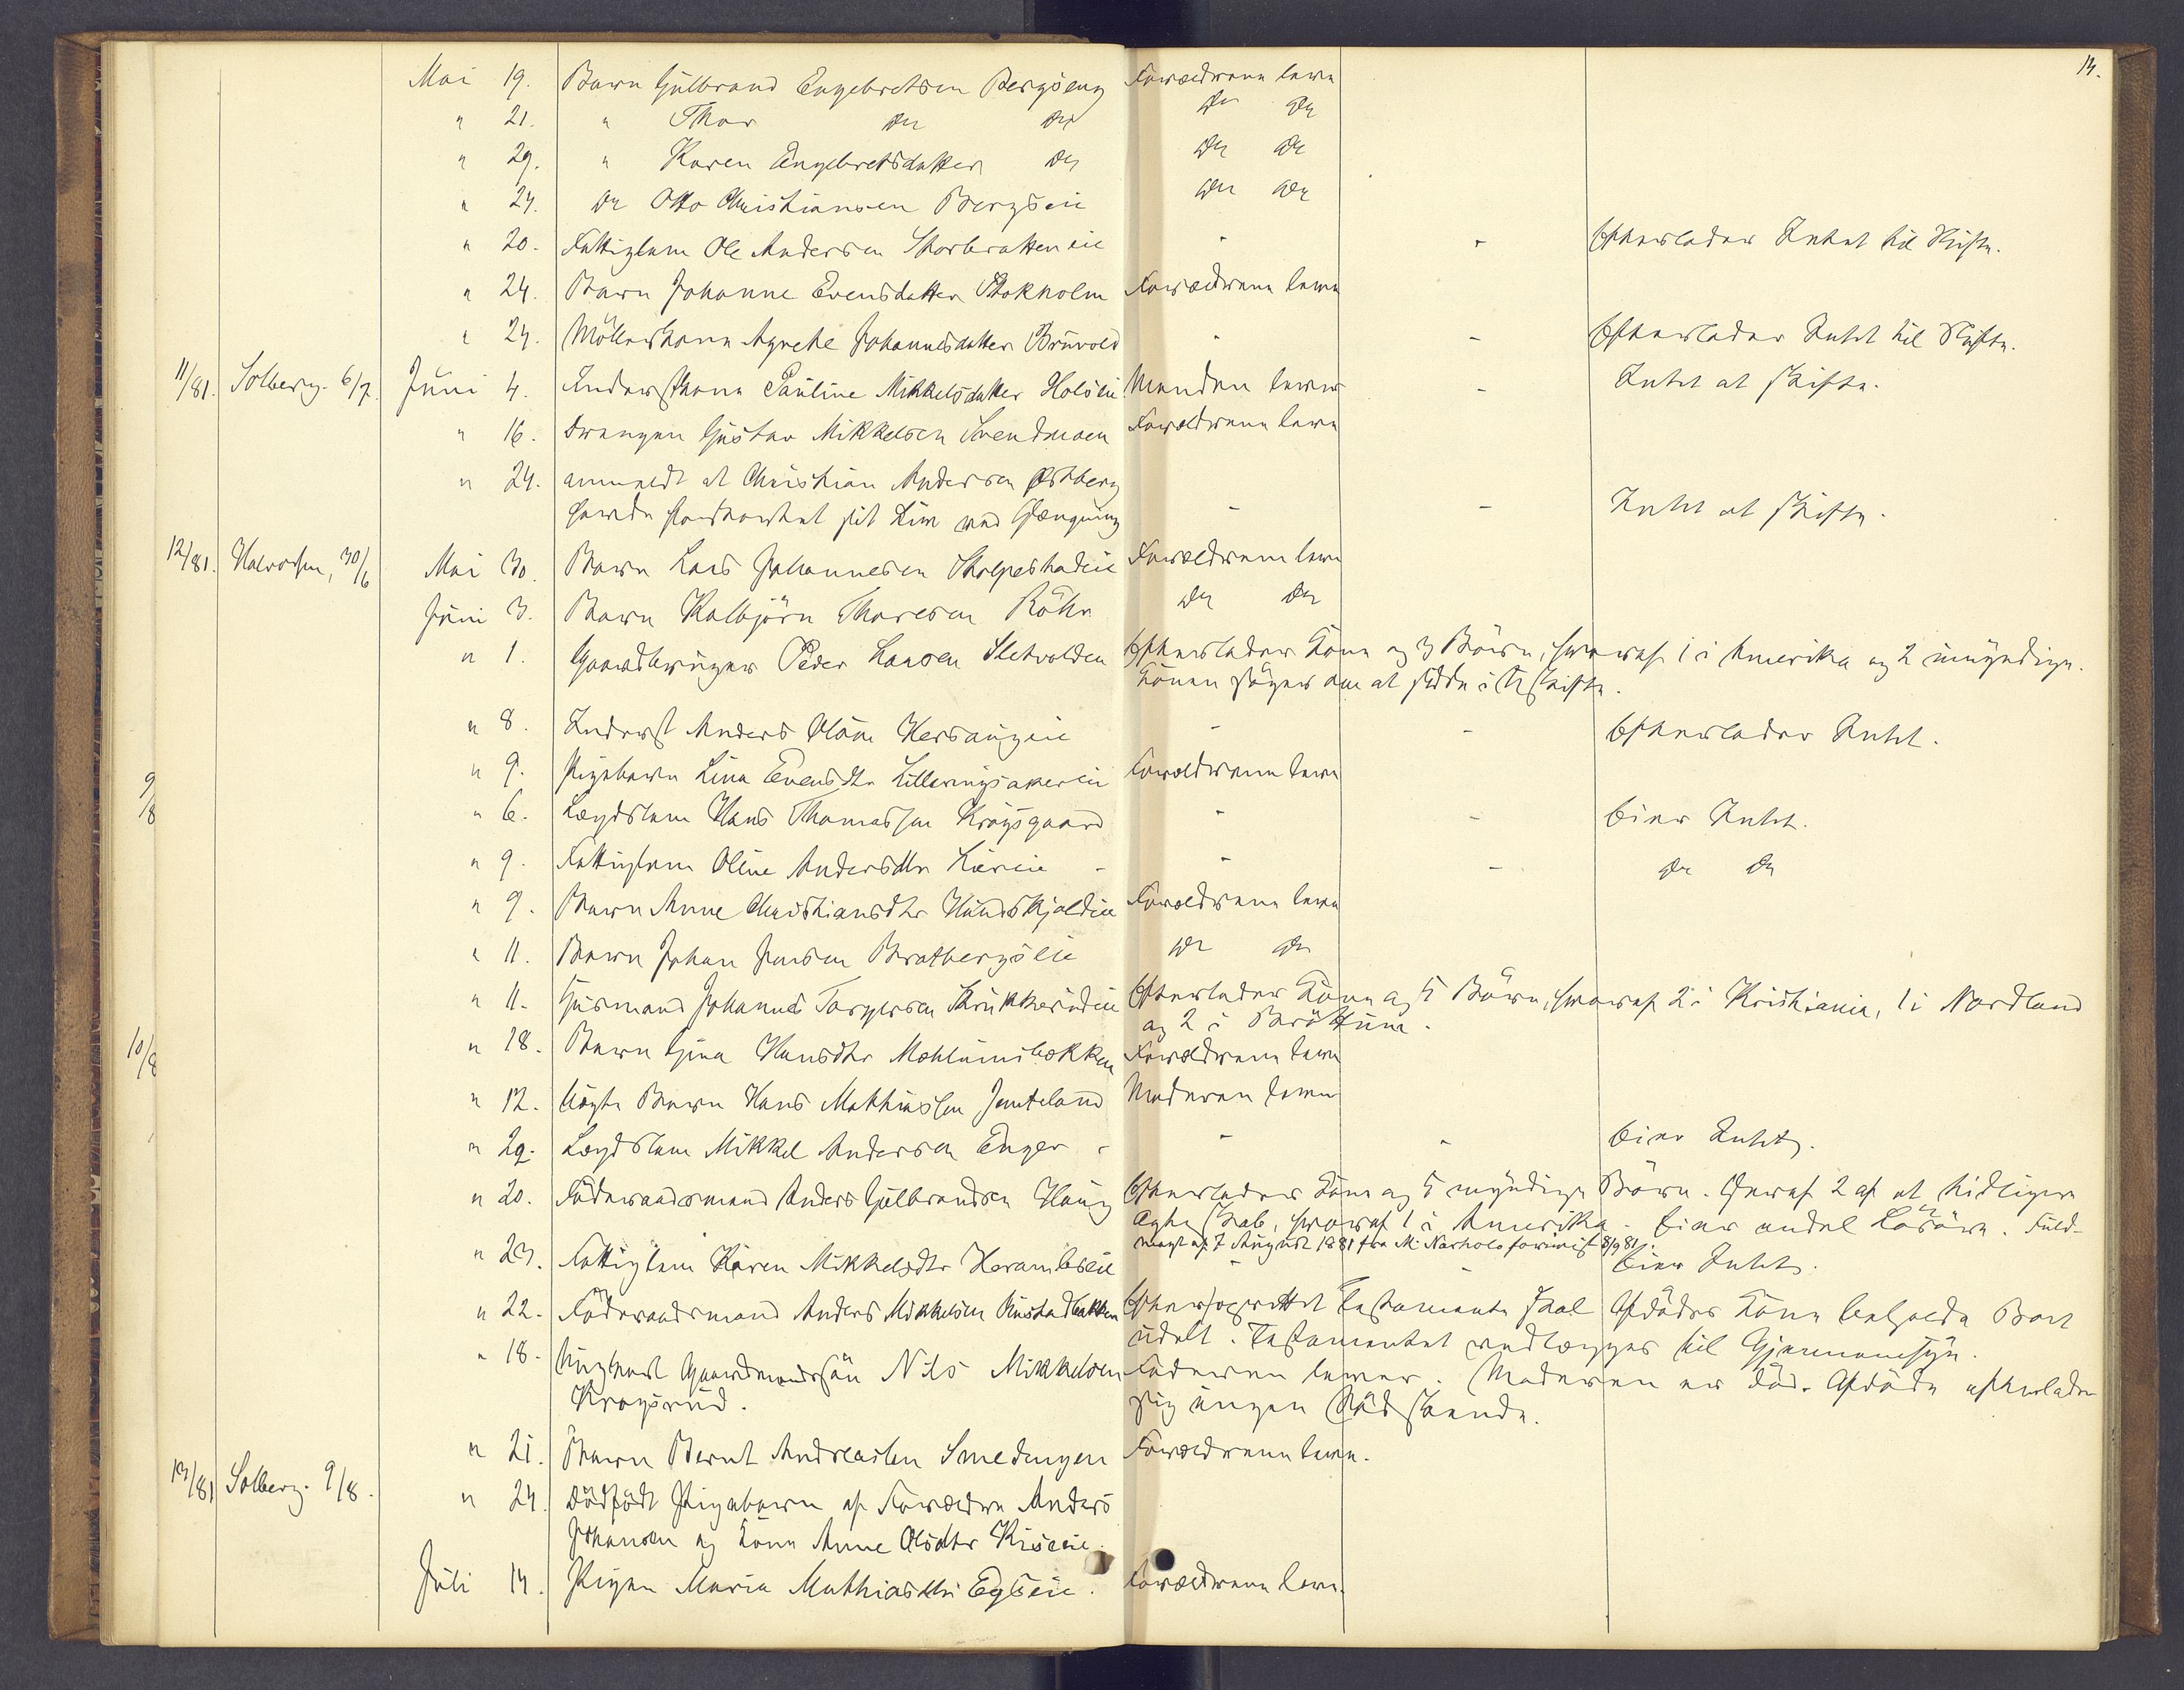 14.
Mai 19. Barn Gulbrand Engebretsen Bergseng Forældrene leve
" 21. " Thor do do do do
" 29. " Karen Engebretsdatter do do do
" 24. do Otto Christiansen Bergseie do do
" 20. Fattiglem Ole Andersen Skarbratteneie - - Efterlader Intet til Skifte.
" 24. Barn Johanne Evensdatter Stokholm Forældrene leve
" 24. Møllerkone Agnethe Johannesdatter Bruvold - - Efterlader Intet til Skifte.
11/81. Solberg. 6/7. Juni 4. Inderstkone Pauline Mikkelsdatter Holseie Manden lever - Intet at skifte.
" 16. Drengen Gustav Mikkelsen Svendmoen Forældrene leve
" 24. anmeldt at Christian Andersen Østberg
havde forkortet sit Liv ved Hængning - - Intet at skifte.
12/81. Halvorsen, 30/6 Mai 30. Barn Lars Johannesen Skolpestadeie Forældrene leve
Juni 3. Barn Kolbjørn Thoresen Röhn do do
" 1. Gaardbruger Peder Hansen Sletvolden Efterlader Kone og 3 Börn, hvoraf 1 i Amerika og 2 umyndige.
Konen søger om at sidde i Uskifte.
" 8. Inderst Anders Olsen Hersaugeie - - Efterlader Intet.
" 9. Pigebarn Lina Evensdtr Lilleringsakereie Forældrene leve
9/8
" 6. Lægdslem Hans Thomassen Krøysgaard - - Eier Intet.
" 9. Fattiglem Oline Andersdtr Liereie - - - do do
" 9. Barn Anne Christiansdtr Hundskjoldeie Forældrene leve
" 11. Barn Johan Jensen Bratbergseie do do
" 11. Husmand Johannes Torgersen Skrukkerudeie Efterlader Kone og 5 Börn, hvoraf 2 i Kristiania, 1 i Nordland
og 2 i Brøttum.
10/8
" 18. Barn Gina Hansdtr Mæhlumsbækken Forældrene leve
" 12. Uægte Barn Hans Mathiassen Jemteland Moderen lever
" 29. Lægdslem Mikkel Andersen Enger - - - Eier Intet.
" 20. Föderaadsmand Anders Gulbrandsen Haug Efterlader Kone og 5 myndige Börn. Heraf 2 af et tidligere
Ægteskab, hvoraf 1 i Amerika. Eier endel Lösöre. Fuld-
magt af 7 August 1881 fra M. Narholo forevist 8/9 81.
" 23. Fattiglem Karen Mikkelsdtr Haramlseie - - Eier Intet.
" 22. Föderaadsmand Anders Mikkelsen Rustadbakken Efter oprettet Testamente skal Afdödes Kone beholde Boet
udelt. Testamentet vedlægges til Gjennemsyn.
" 18. Ungkarl Gaardmandssön Nils Mikkelsen Faderen lever. Moderen er död. Afdöde efterlader
Krogsrud. sig ingen Nödstænde.
" 21. Barn Bernt Andreassen Smedengen Forældrene leve.
13/81 Solberg. 9/8. " 24. Dödfödt Pigebarn af Forældre Anders
Johansen og Kone Anne Olsdtr Kiseeie.
Juli 14. Pigen Maria Mathiasdtr Egseie. Forældrene leve.